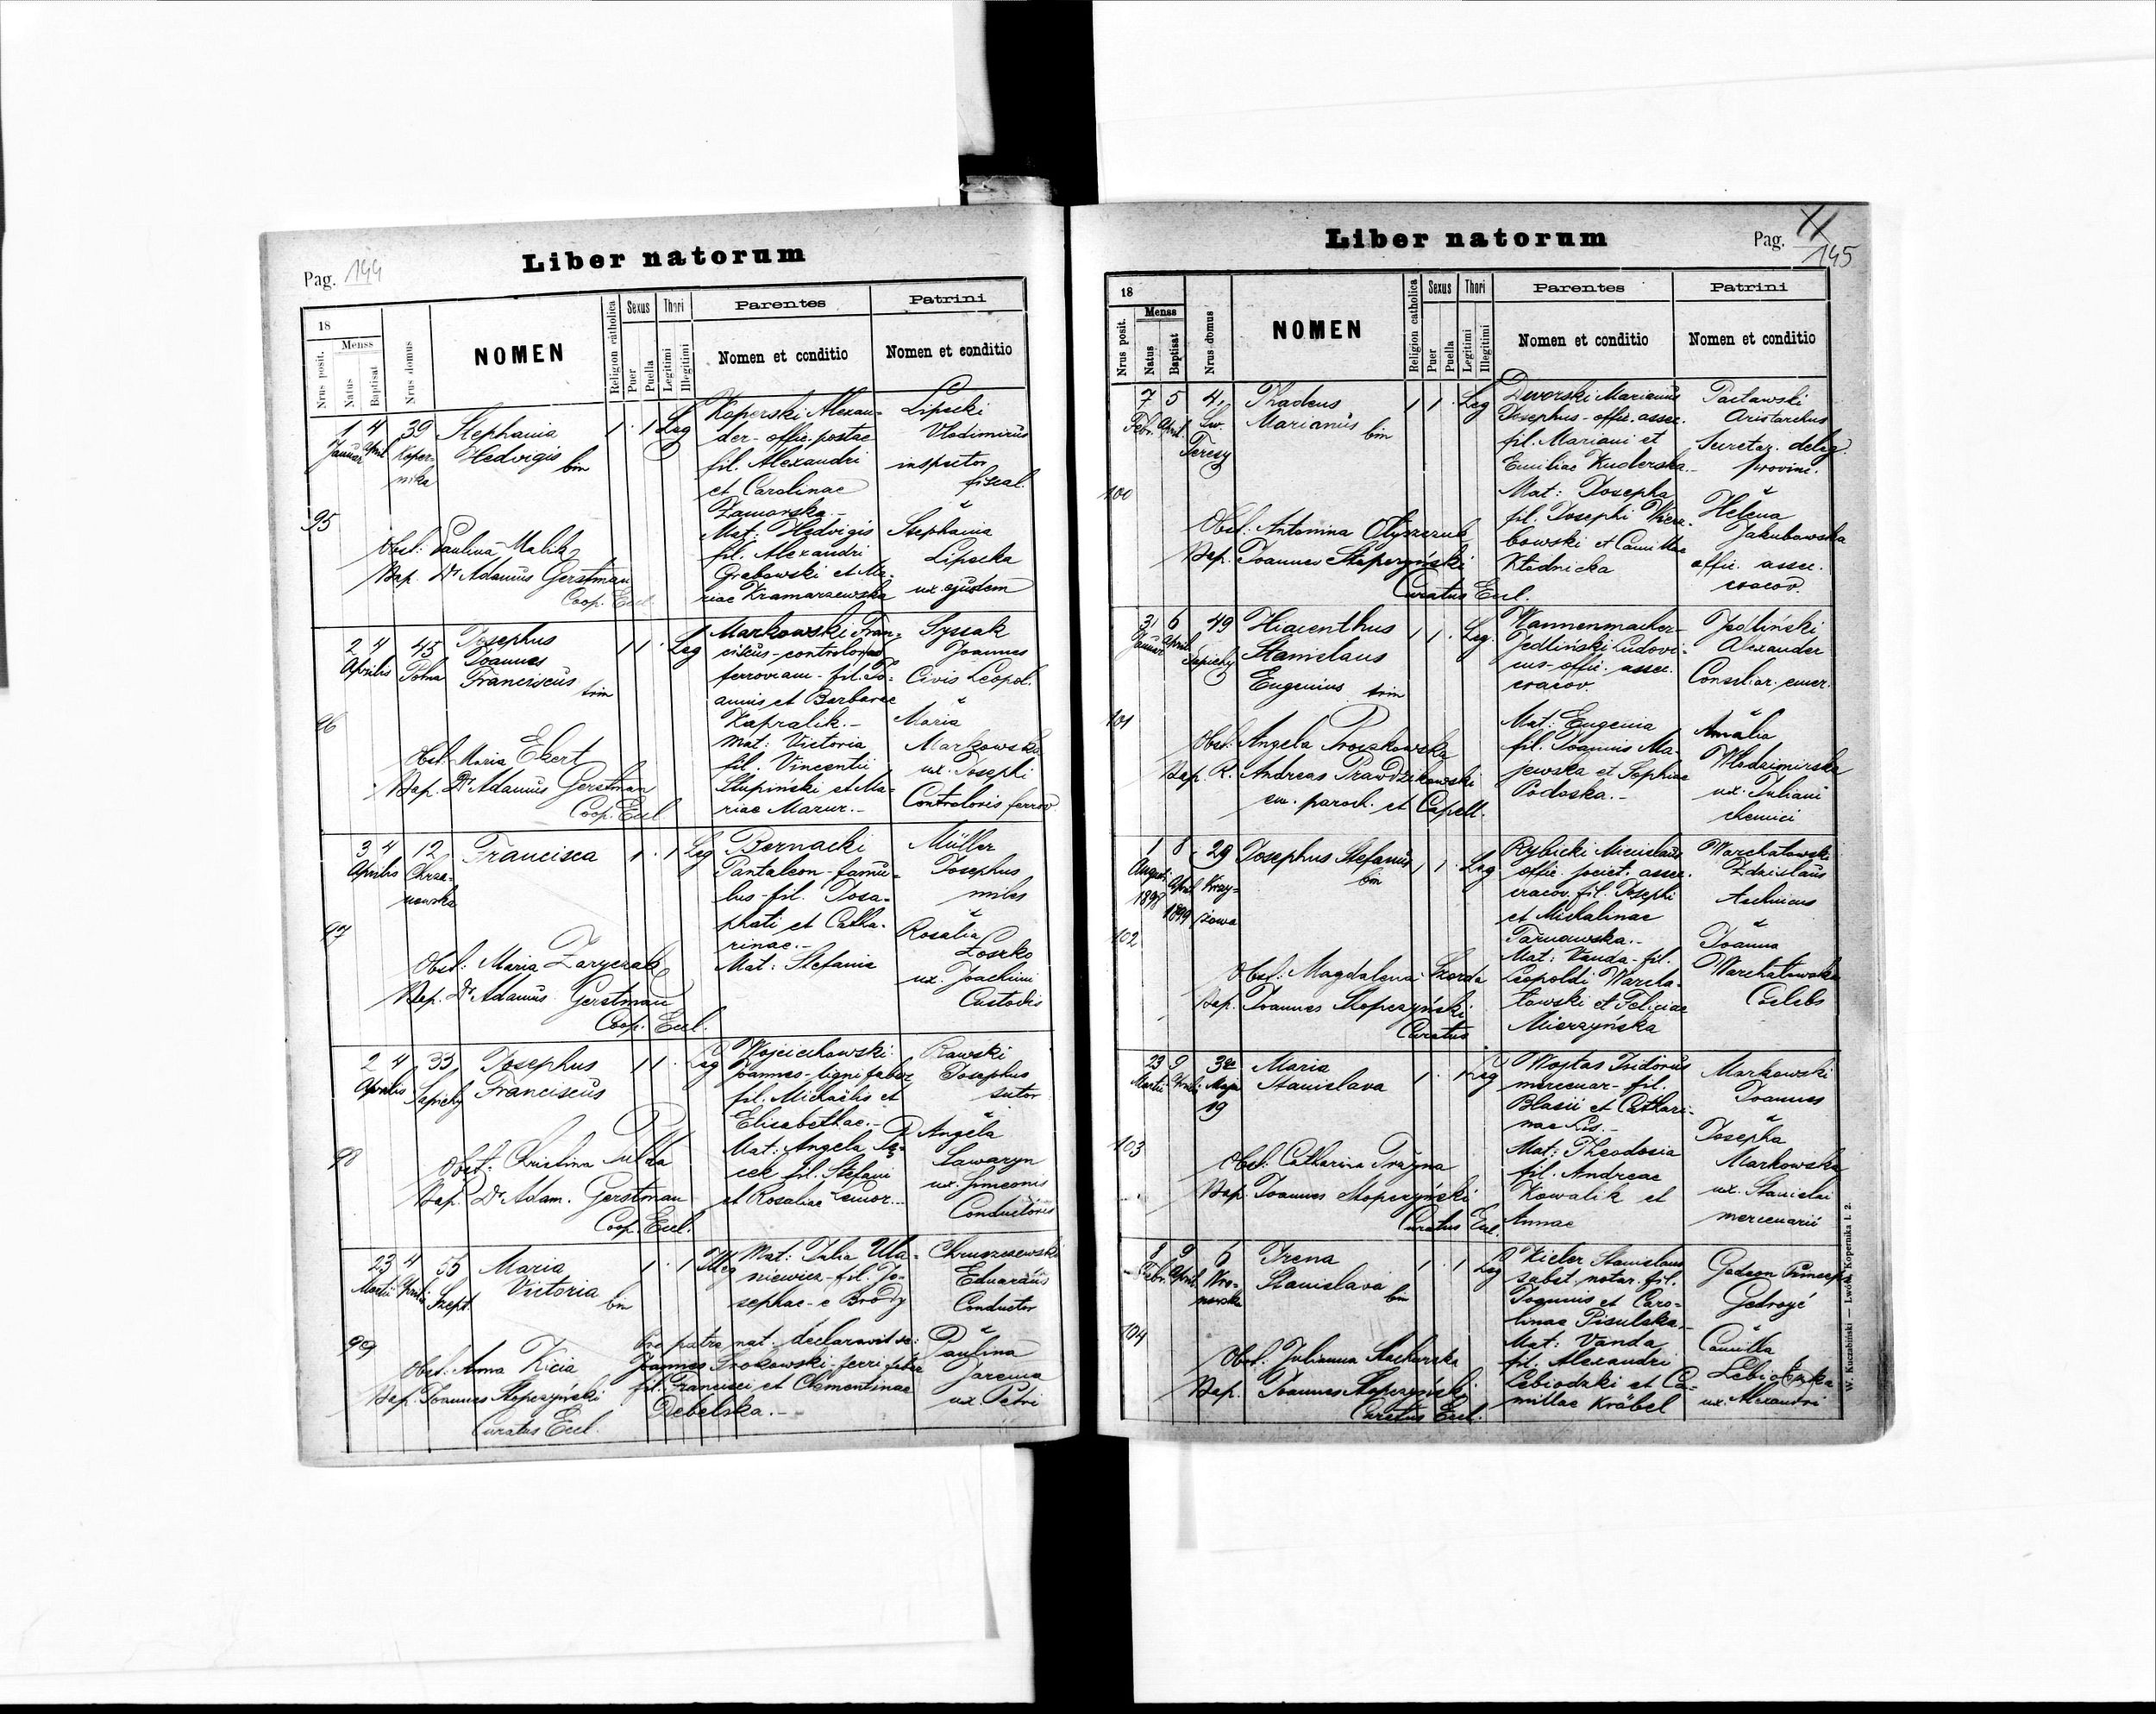 Liber natorum
Pag. 144
18
Menss
Nrus posit.
Natus
Baptisat
Nrus domus
NOMEN
Religion catholica
Sexus
Puer
Puella
Thori
Legitimi
Illegitimi
Parentes
Nomen et conditio
Patrini
Nomen et conditio
95
1 4 39
Januar April Koper-
nika
Stephania
Hedvigis bin
1 · 1 Leg
Obst: Paulina Malik
Bap. Dr Adamus Gerstman
Coop. Eccl.
Koperski Alexan-
der - offic. postae
fil. Alexandri
et Carolinae
Zamorska. -
Mat: Hedvigis
fil. Alexandri
Grabowski et Ma-
riae Kramarzewska
Lipecki
Vladimirus
inspector
fiscal.
Stephania
Lipecka
ux. ejusdem
96
2 4 45
Aprilis Polna
Josephus
Joannes
Franciscus trin
1 1 · Leg
Obst. Maria Ekert
Bap. Dr Adamus Gerstman
Coop. Eccl
Markowski Fran-
ciscus - controlor
ferroviam - fil. Jo-
annis et Barbarae
Kapralik. -
Mat: Victoria
fil. Vincentii
Słupiński et Ma-
riae Mazur. -
Syssak
Joannes
Civis Leopol.
Maria
Markowska
ux. Josephi
Controloris ferrov.
97
3 4 12
Aprilis Chrza-
nowska
Francisca
1 · 1 Leg
Obst: Maria Zaryczak
Bap. Dr Adamus Gerstman
Coop. Eccl.
Bernacki
Pantaleon - famu-
lus - fil. Josa-
phati et Catha-
rinae. -
Mat: Stefania
Müller
Josephus
miles
Rosalia
Łoszko
ux. Joachimi
Custodis
98
2 4 33
Aprilis Sapiehy
Josephus
Franciscus
1 1 · Leg
Obst: Christina
Bap. Dr. Adam. Gerstman
Coop. Eccl.
Wojciechowski
Joannes - ligni faber
fil. Michaëlis et
Elisabethae. -
Mat: Angela
fil. Stefani
et Rosaliae
Rawski
Josephus
sutor
Angela
Lawaryn
ux. Simeonis
Conductoris
99
23 4 55
Martii Aprilis Szept.
Maria
Victoria bin
1 · 1 Illeg
Obst. Anna Kicia
Bap. Joannes Stopczyński
Curatus Eccl.
Mat: Julia Ula-
niewicz - fil. Jo-
sephae - e Brody
pro patre nat. declaravit se:
Joannes Grokowski - ferri faber
fil. Francisci et Clementinae
Debelska. -
Chruszczewski
Eduardus
Conductor
Paulina
Jarema
ux. Petri
Liber natorum
Pag. 145
18
Menss
Nrus posit.
Natus
Baptisat
Nrus domus
NOMEN
Religion catholica
Sexus
Puer
Puella
Thori
Legitimi
Illegitimi
Parentes
Nomen et conditio
Patrini
Nomen et conditio
100
7 5 4,
Febr. April. Św.
Teresy
Thadeus
Marianus bin
1 1 · Leg
Obst. Antonina Olyszczuk
Bap. Joannes Stopczyński
Curatus Eccl.
Dworski Marianus
Josephus - offic. assec.
fil. Mariani et
Emiliae Kuderska
Mat: Josepha
fil. Josephi Wierz-
bowski et Camillae
Kłodnicka
Pacławski
Aristarchus
Secretar. deleg.
provinc.
Helena
Jakubowska
offic. assec.
cracov.
101
31 6 49
Januar April Sapiehy
Hiacenthus
Stanislaus
Eugenius trin
1 1 · Leg.
Obst: Angela Proszkowska
Bap. R. Andreas Prawdzikowski
em. paroch. et Capell.
Wannenmacher-
Jedliński Ludovi-
cus - offic. assec.
cracov.
Mat: Eugenia
fil. Joannis Ma-
jewska et Sophiae
Podoska. -
Jedliński
Alexander
Consiliar. emer.
Amalia
Włodzimirska
ux. Juliani
chemici
102
1 8 29
Augusti April Krzy-
1898 1899 żowa
Josephus Stefanus
bin
1 1 · Leg
Obst: Magdalena Szorda
Bap. Joannes Stopczyński
Curatus
Rybicki Miecislaus
offic. societ. assec.
cracov. fil. Josephi
et Michalinae
Tarnawska. -
Mat: Vanda - fil.
Leopoldi Warcha-
łowski et Feliciae
Mierzyńska
Warchałowski
Zdzislaus
Technicus
Joanna
Warchałowska
Coelebs
103
23 9 3go
Martii Aprilis Maja
19
Maria
Stanislava
1 · 1 Leg
Obst: Catharina Trayna
Bap. Joannes Stopczyński
Curatus Eccl.
Wojtas Isidorus
mercenar - fil.
Blasii et Cathari-
nae Lis. -
Mat: Theodosia
fil. Andreae
Kowalik et
Annae
Markowski
Joannes
Josepha
Markowska
ux. Stanislai
mercenarii
104
8 9 6
Febr. April. Kro-
nowska
Irena
Stanislava bin
1 · 1 Leg
Obst. Julianna Stacharska
Bap. Joannes Stopczyński
Curatus Eccl.
Kieler Stanislaus
subst. notar. fil.
Joannis et Caro-
linae Pisulska. -
Mat: Vanda
fil. Alexandri
Lebiodzki et Ca-
millae Kräbel
Gedeon Princeps
Gedroyć
Camilla
Lebiodzka
ux. Alexandri
W. Kuczabiński — Lwów, Kopernika l. 2.